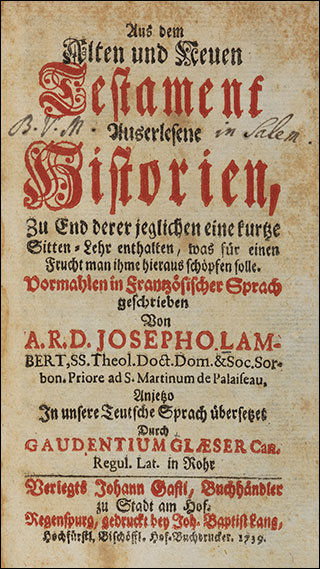 Aus dem
Alten und Neuen
Testament
B. V. M. Auserlesene in Salem.
Historien,
Zu End derer jeglichen eine kurtze
Sitten-Lehr enthalten, was für einen
Frucht man ihme hieraus schöpfen solle.
Vormahlen in Frantzösischer Sprach
geschrieben
Von
A.R.D. JOSEPHO, LAM-
BERT, SS. Theol. Doct. Dom. & Soc. Sor-
bon. Priore ad S. Martinum de Palaiseau.
Anjetzo
In unsere Teutsche Sprach übersetzet
Durch
GAUDENTIUM GLÆSER Can.
Regul. Lat. in Rohr
Verlegts Johann Gastl, Buchhändler
zu Stadt am Hof.
Regenspurg, gedruckt bey Joh. Baptist Lang,
Hochfürstl. Bischöffl. Hof-Buchdrucker. 1739.